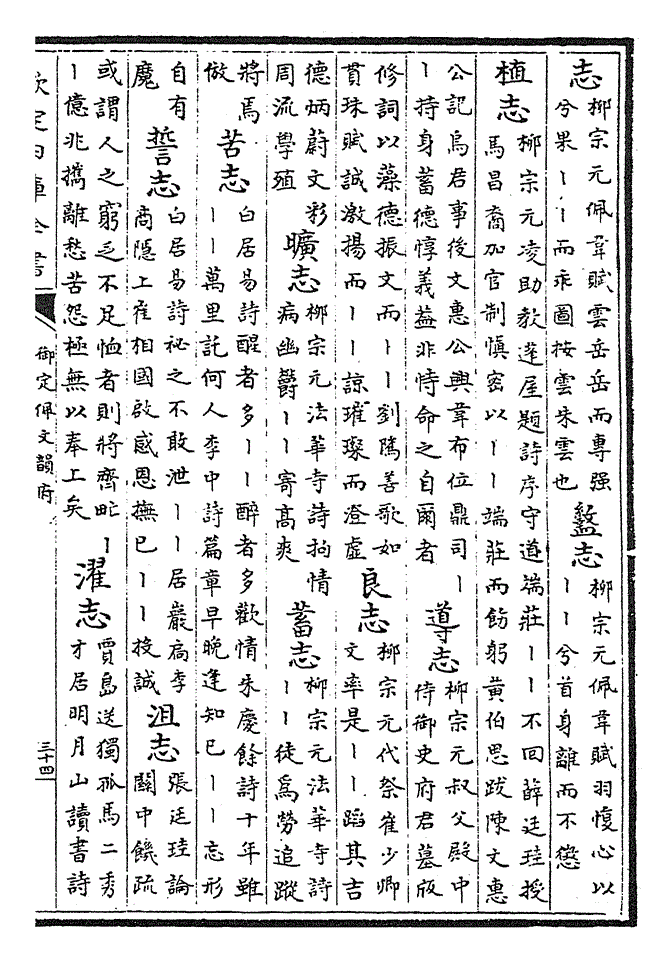 志 柳宗元佩韋賦雲岳岳而專强兮果丨丨而乖圖按雲朱雲也 盭志 柳宗元佩韋賦羽愎心以丨丨兮首身離而不懲
植志 柳宗元凌助教蓬屋題詩序守道端莊丨丨不回薛廷珪授馬昌裔加官制愼密以丨丨端莊而飭躬黄伯思跋陳文惠
公記烏君事後文惠公興韋布位鼎司丨丨持身蓄德惇義葢非恃命之自爾者 導志 柳宗元叔父殿中侍御史府君墓版
修詞以藻德振文而丨丨劉隲善歌如貫珠賦誠激揚而丨丨諒璀璨而澄虚 良志 柳宗元代祭崔少卿文率是丨丨蹈其吉
德炳蔚文彩周流學殖 曠志 柳宗元法華寺詩拘情病幽鬱丨丨寄高爽 蓄志 柳宗元法華寺詩丨丨徒爲勞追蹤
將焉倣 苦志 白居易詩醒者多丨丨醉者多歡情朱慶餘詩十年雖丨丨萬里託何人李中詩篇章早晚逢知已丨丨忘形
自有魔 誓志 白居易詩祕之不敢泄丨丨居巖扃李商隱上崔相國啟感恩撫已丨丨投誠 沮志 張廷珪論關中饑疏
或謂人之窮乏不足恤者則將齊甿丨丨億兆攜離愁苦怨極無以奉上矣 濯志 賈島送獨孤馬二秀才居明月山讀書詩
欽定四庫全書 御定佩文韻府 三十四